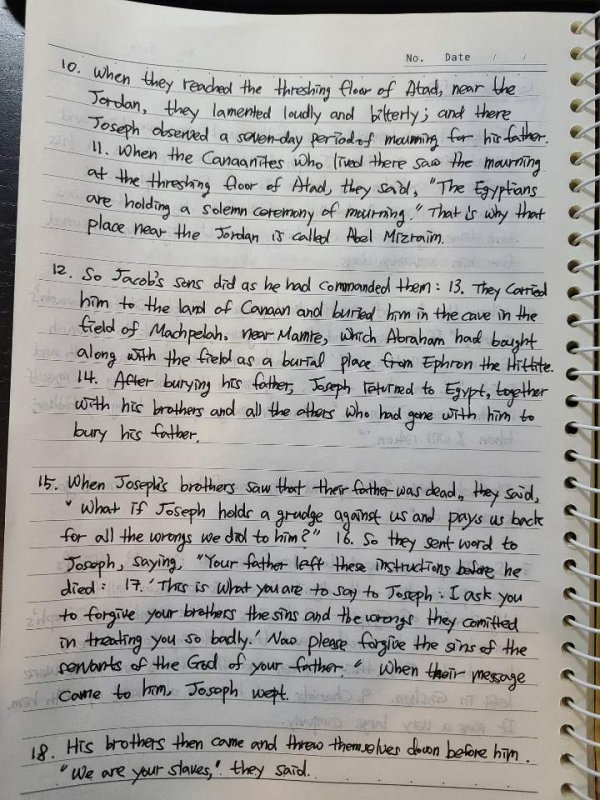 No. Date / /
10. When they reached the threshing floor of Atad, near the
Jordan, they lamented loudly and bitterly; and there
Joseph observed a seven-day period of mourning for his father.
11. When the Canaanites who lived there saw the mourning
at the threshing floor of Atad, they said, "The Egyptians
are holding a solemn ceremony of mourning." That is why that
place near the Jordan is called Abel Mizraim.
12. So Jacob's sons did as he had commanded them: 13. They carried
him to the land of Canaan and buried him in the cave in the
field of Machpelah, near Mamre, which Abraham had bought
along with the field as a burial place from Ephron the Hittite.
14. After burying his father, Joseph returned to Egypt, together
with his brothers and all the others who had gone with him to
bury his father.
15. When Joseph's brothers saw that their father was dead, they said,
"What if Joseph holds a grudge against us and pays us back
for all the wrongs we did to him?" 16. So they sent word to
Joseph, saying, "Your father left these instructions before he
died: 17. 'This is what you are to say to Joseph: I ask you
to forgive your brothers the sins and the wrongs they comitted
in treating you so badly.' Now please forgive the sins of the
servants of the God of your father." When their message
came to him, Joseph wept.
18. His brothers then came and threw themselves down before him.
"We are your slaves," they said.